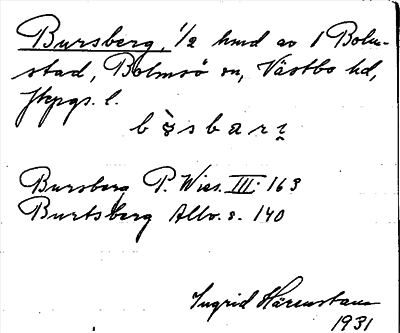 Bursberg, 1/2 hmd av 1 Bolm-
stad, Bolmsö sn, Västbo hd,
Jkpgs. l.
Bursberg P. Wies. III: 163
Burtsberg Allv. s. 140
Ingrid Härenstam
1931